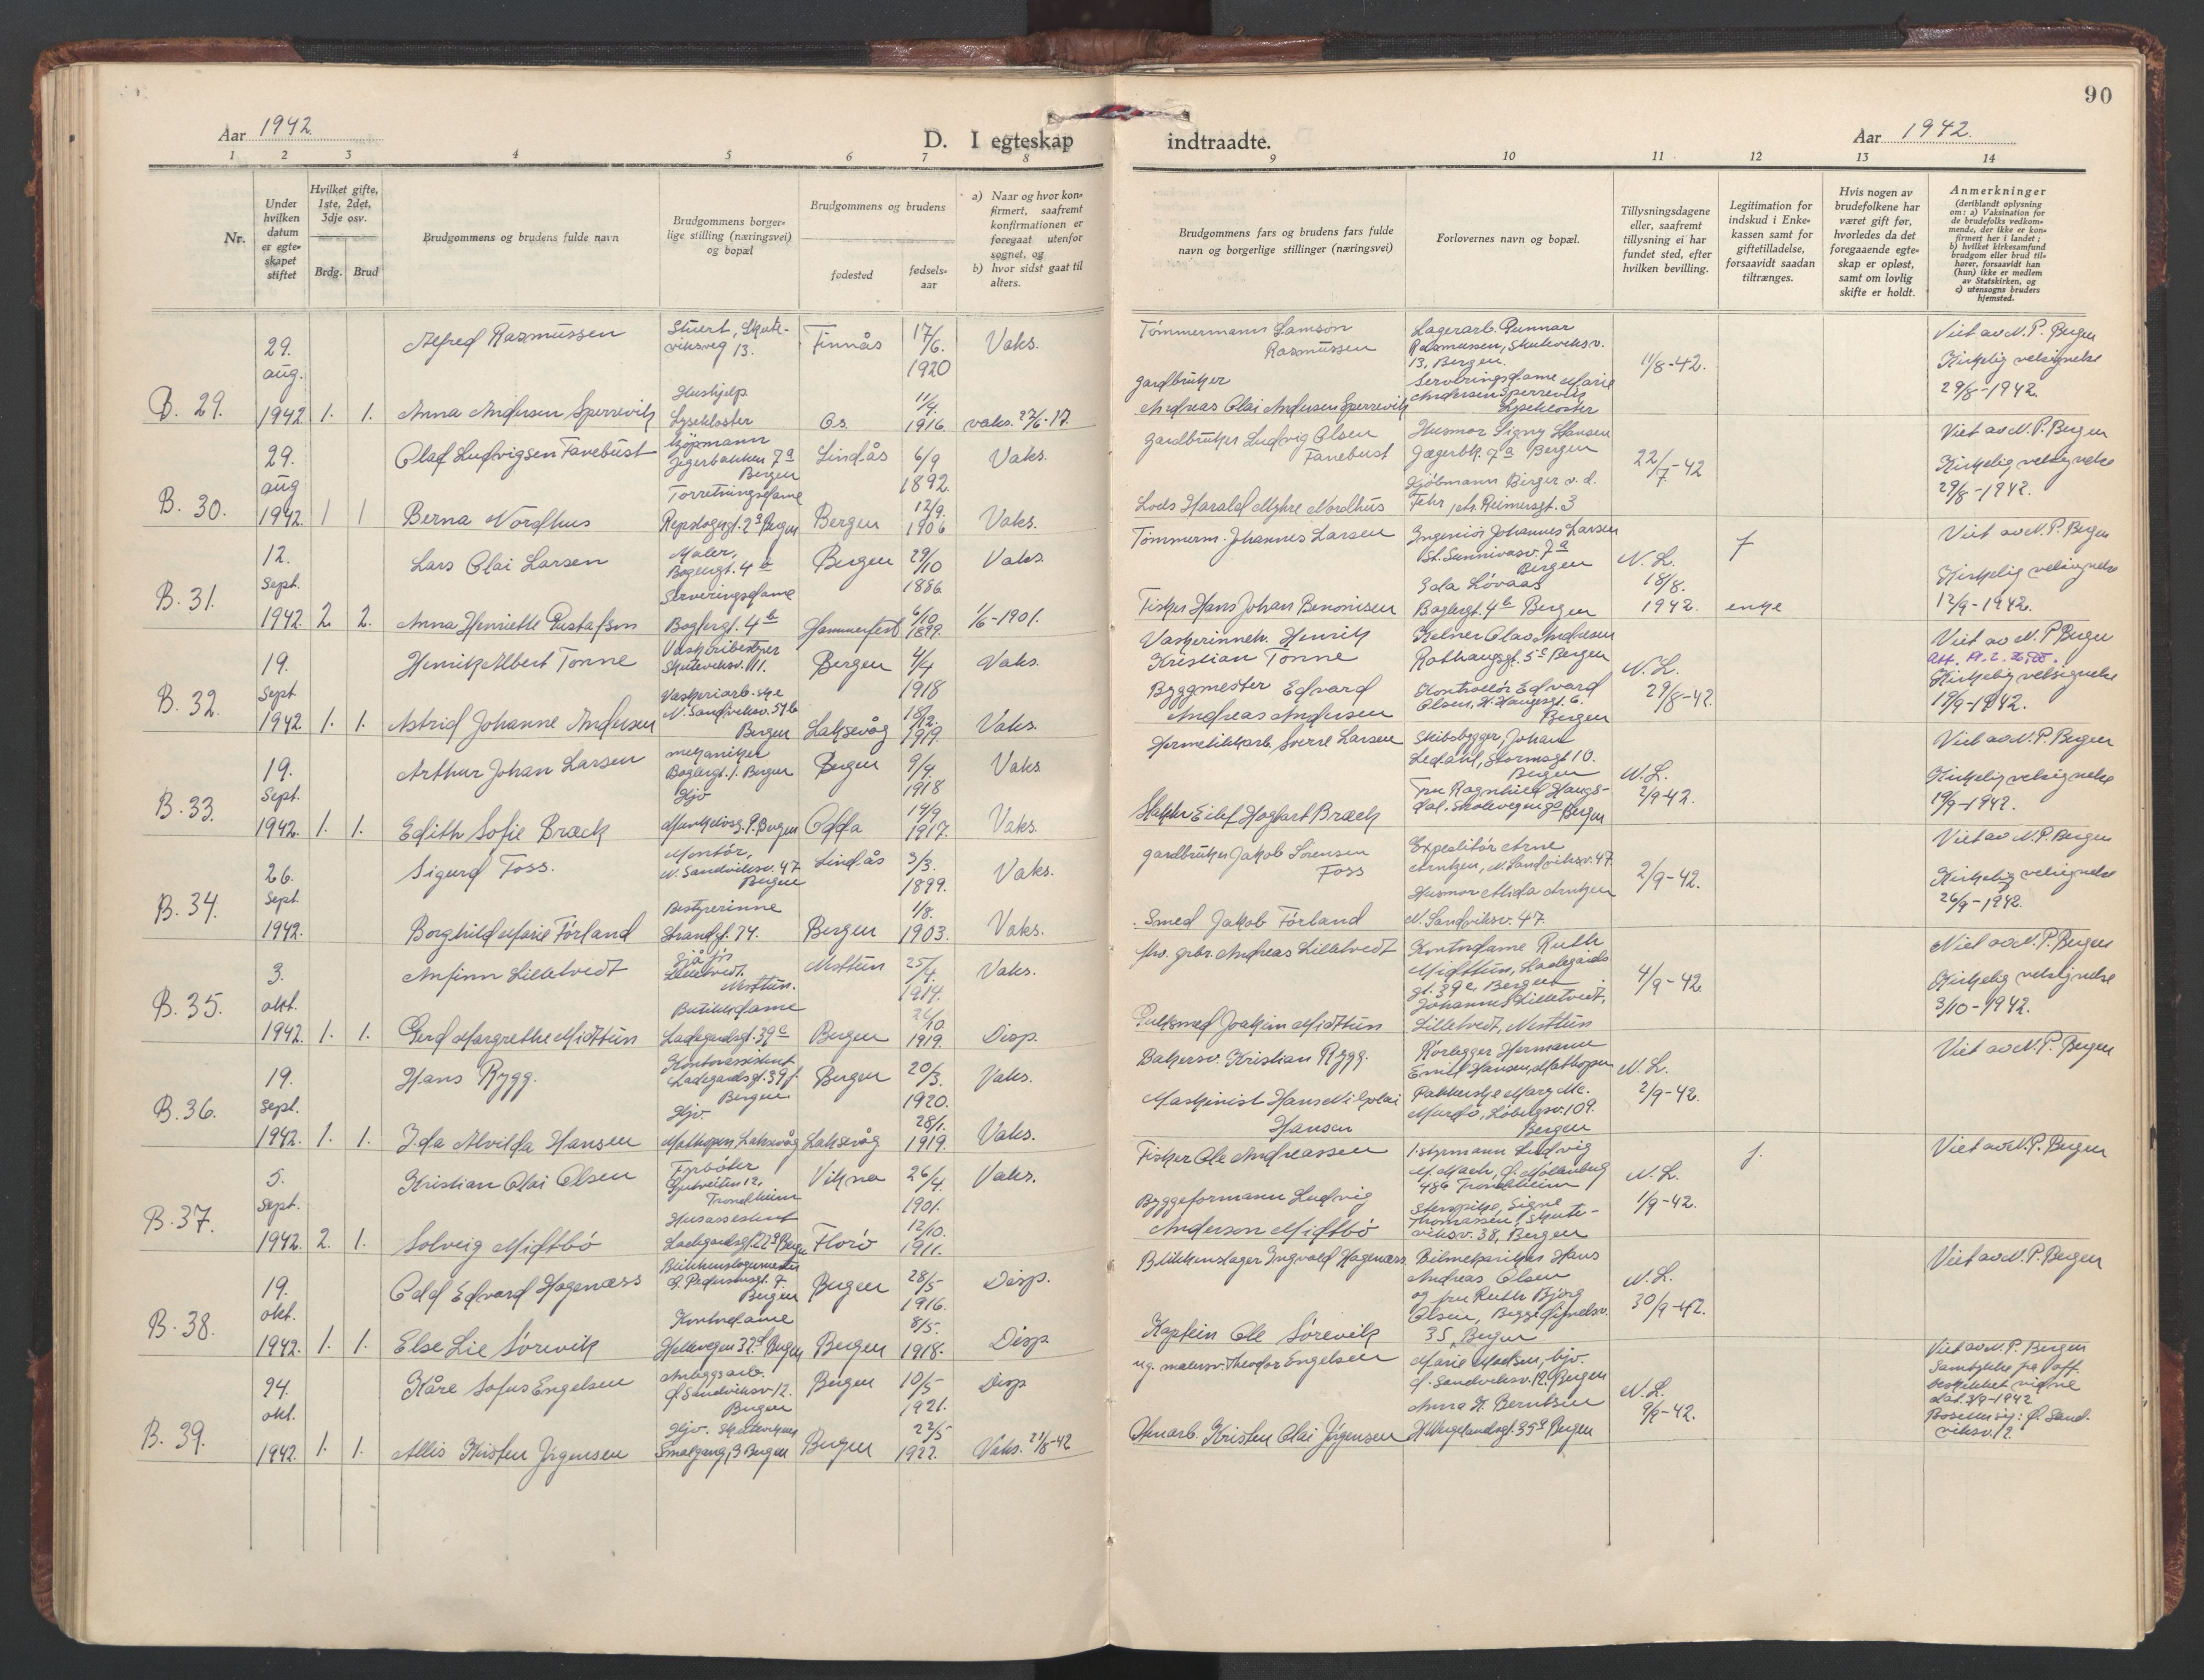 90
Aar 1942.
D. I egteskap indtraadte.
Aar 1942.
1 2 3 4 5 6 7 8 9 10 11 12 13 14
Nr.
Under hvilken datum er egteskapet stiftet
Hvilket gifte, 1ste, 2det, 3dje osv.
Brdg. Brud
Brudgommens og brudens fulde navn
Brudgommens borgerlige stilling (næringsvei) og bopæl
Brudgommens og brudens
fødested
fødselsaar
a) Naar og hvor konfirmert, saafremt konfirmationen er foregaat utenfor sognet, og
b) hvor sidst gaat til alters.
Brudgommens fars og brudens fars fulde navn og borgerlige stillinger (næringsvei)
Forlovernes navn og bopæl.
Tillysningsdagene eller, saafremt tillysning ei har fundet sted, efter hvilken bevilling.
Legitimation for indskud i Enkekassen samt for giftetilladelse, forsaavidt saadan tiltrænges.
Hvis nogen av brudefolkene har været gift før, hvorledes da det foregaaende egteskap er opløst, samt om lovlig skifte er holdt.
Anmerkninger
(deriblandt oplysning om: a) Vaksination for de brudefolks vedkommende, der ikke er konfirmert her i landet; b) hvilket kirkesamfund brudgom eller brud tilhører, forsaavidt han (hun) ikke er medlem av Statskirken, og c) utensogns bruders hjemsted.
B. 29.
29. aug. 1942 1. 1.
Alfred Rasmussen
Stuert, Skuteviksveg 13.
Finnås
17/6. 1920
Vaks.
Tömmermann Samson Rasmussen
Lagerarb. Gunnar Rasmussen, Skuteviksv. 13, Bergen.
11/8-42.
Viet av N. P. Bergen
Kirkelig velsignelse
29/8-1942.
Anna Andersen Sperrevik
Hushjelp Lysekloster
Os.
11/4. 1916
vaks.
gardbruker Andreas Olai Andersen Sperrevik
Serveringsdame Marie Andersen Sperrevik Lysekloster
B. 30.
29. aug 1942 1 1
Olaf Ludvigsen Fanebust
Kjöpmann Jegerbakken 7a Bergen
Lindås
6/9 1892.
Vaks.
Gardbruker Ludvig Olsen Fanebust
Husmor Signy Hansen Jægerbk. 7a Bergen
22/7-42
Viet av N. P. Bergen
Kirkelig velsignelse
29/8-1942.
Berna Nordhus
Forretningsdame Repslagergt. 2a Bergen
Bergen
12/9. 1906
Vaks.
Lods Harald Myhre Nordhus
Kjöbmann Birger v. d. Fehr
B. 31.
12. Sept. 1942 2 2.
Lars Olai Larsen
Maler, Baglergt. 4b
Bergen
29/10 1886
Vaks.
Tömmerm. Johannes Larsen
Ingeniör Johannes Larsen St. Sunnivasv. 7a Bergen
N. L. 18/8. 1942.
f
Viet av N. P. Bergen
Kirkelig velsignelse
12/9-1942.
Anna Henriette Gustafson
Serveringsdame Baglergt. 4b
Hammerfest
6/10 1899.
1/6-1901.
Fisker Hans Johan Benonisen
Ida Lövaas Baglergt. 4b Bergen
enke
B. 32.
19. Sept 1942 1. 1.
Henrik Albert Tonne
Vaskeribestyrer Skuteviksv. 111.
Bergen
4/4 1918
Vaks.
Vaskerinneh. Henrik Kristian Tonne
Kelner Olav Andersen Rothaugsgt. 5c Bergen
N. L. 29/8-42.
Viet av N. P Bergen
Kirkelig velsignelse
19/9-1942.
Astrid Johanne Andersen
Vaskeriarb.ske N. Sandviksv. 57b Bergen
Laksevåg
18/12. 1919.
Vaks.
Byggmester Edvard Andreas Andersen
Kontrollör Edvard Olsen, H. Haugesgt. 6. Bergen
B. 33.
19. Sept. 1942 1. 1.
Arthur Johan Larsen
mekaniker Baglergt. 1. Bergen
Bergen
9/4. 1918
Vaks
Hermetikkarb. Sverre Larsen
Skibsbygger, Johan Ledahl, Stormsgt 10. Bergen
N. L. 2/9-42.
Viet av N. P. Bergen
Kirkelig velsignelse
19/9-1942.
Edith Sofie Bræck
Hjv
Odda
19/9 1917.
Vaks.
Fru Ragnhild Haugsdal, Bergen
B. 34.
26. Sept 1942.
Sigurd Foss.
Montör, N. Sandviksv. 47 Bergen
Lindås
3/3. 1899.
Vaks.
gardbruker Jakob Sorensen Foss
Expeditör Arne Arntzen, N. Sandviksv. 47.
2/9-42.
Viet av N. P. Bergen
Kirkelig velsignelse
26/9-1942.
Borghild Marie Förland
Bestyrerinne Strandgt. 74.
Bergen
1/8. 1903.
Vaks.
Smed Jakob Förland
Husmor Alida Arntzen N. Sandviksv. 47.
B. 35.
3. okt. 1942 1. 1.
Anfinn Lilletvedt
Lilletvedt. Nesttun.
Nesttun
25/4. 1914.
Vaks.
fhv. grbr. Andreas Lilletvedt
Kontordame Ruth Midttun, Ladegårdsgt. 39c, Bergen
4/9-42.
Viet av N. P. Bergen
Kirkelig velsignelse
3/10-1942.
Gerd Margrethe Midttun
Butikkdame Ladegårdsgt. 39c
Bergen
1919.
Disp.
Gullsmed Joakim Midttun
Johannes Lilletvedt, Lilletvedt, Nesttun
B. 36.
19. Sept. 1942. 1. 1.
Hans Rygg.
Kontorassistent Ladegårdsgt. 39f. Bergen
Bergen
20/3. 1920.
Vaks.
Bakersv. Kristian Rygg.
Rörlegger Hermann Emil Hansen, Mathopen
N. L. 2/9-42.
Viet av N. P. Bergen
Ida Alvilda Hansen
Hjv. Mathopen Laksevåg
Laksevåg
28/1. 1919.
Vaks.
Maskinist Hans Nikolai Hansen
Mary Mc. Murdo, Löbergsv. 109. Bergen
B. 37.
5. Sept. 1942 2. 1.
Kristian Olai Olsen
Fyrböter Trondheim
Vikna
26/4. 1901.
Vaks.
Fisker Ole Andreassen
1. styrmann Ludvig Trondheim
N. L. 1/9-42.
f.
Viet av N. P. Bergen
Solveig Midtbö
Husassistent Ladegårdsgt. 27a Bergen
Florö
12/10. 1911.
Byggeformann Ludvig Anderson Midtbö
Signe Thomassen, Skuteviksv. 38, Bergen
B. 38.
19. okt. 1942. 1. 1.
Odd Edvard Hagenæss
Blikkenslagermester Bergen
Bergen
28/5 1916.
Disp.
Blikkenslager Ingvald Hagenæss
Bilmekaniker Hans Andreas Olsen
N. L. 30/9-42.
Viet av N. P. Bergen
Else Lie Sörevik
Kontordame Bergen
Bergen
8/5. 1918.
Disp.
Kaptein Ole Sörevik
og fru Ruth Bjørg Olsen, 35, Bergen
B. 39.
24. okt. 1942. 1. 1.
Kåre Sofus Engelsen
Anleggsarb. Ø. Sandviksv 12. Bergen
Bergen
10/5 1921.
Disp
malersv. Theodor Engelsen
Marie Madsen, hjv. Ø. Sandviksv. 12. Bergen
N. L. 9/9-42.
Viet av N. P. Bergen
Samtykke på off. beskikket
Bosetter sig: Ø. Sandviksv. 12.
Allis Kirsten Jörgensen
Hjv. Smalgang 3 Bergen
Bergen
22/5 1922.
Vaks. 21/8-42
Kristen Olai Jörgensen
Anna K. Berntsen H. Wergelandsgt. 35a Bergen